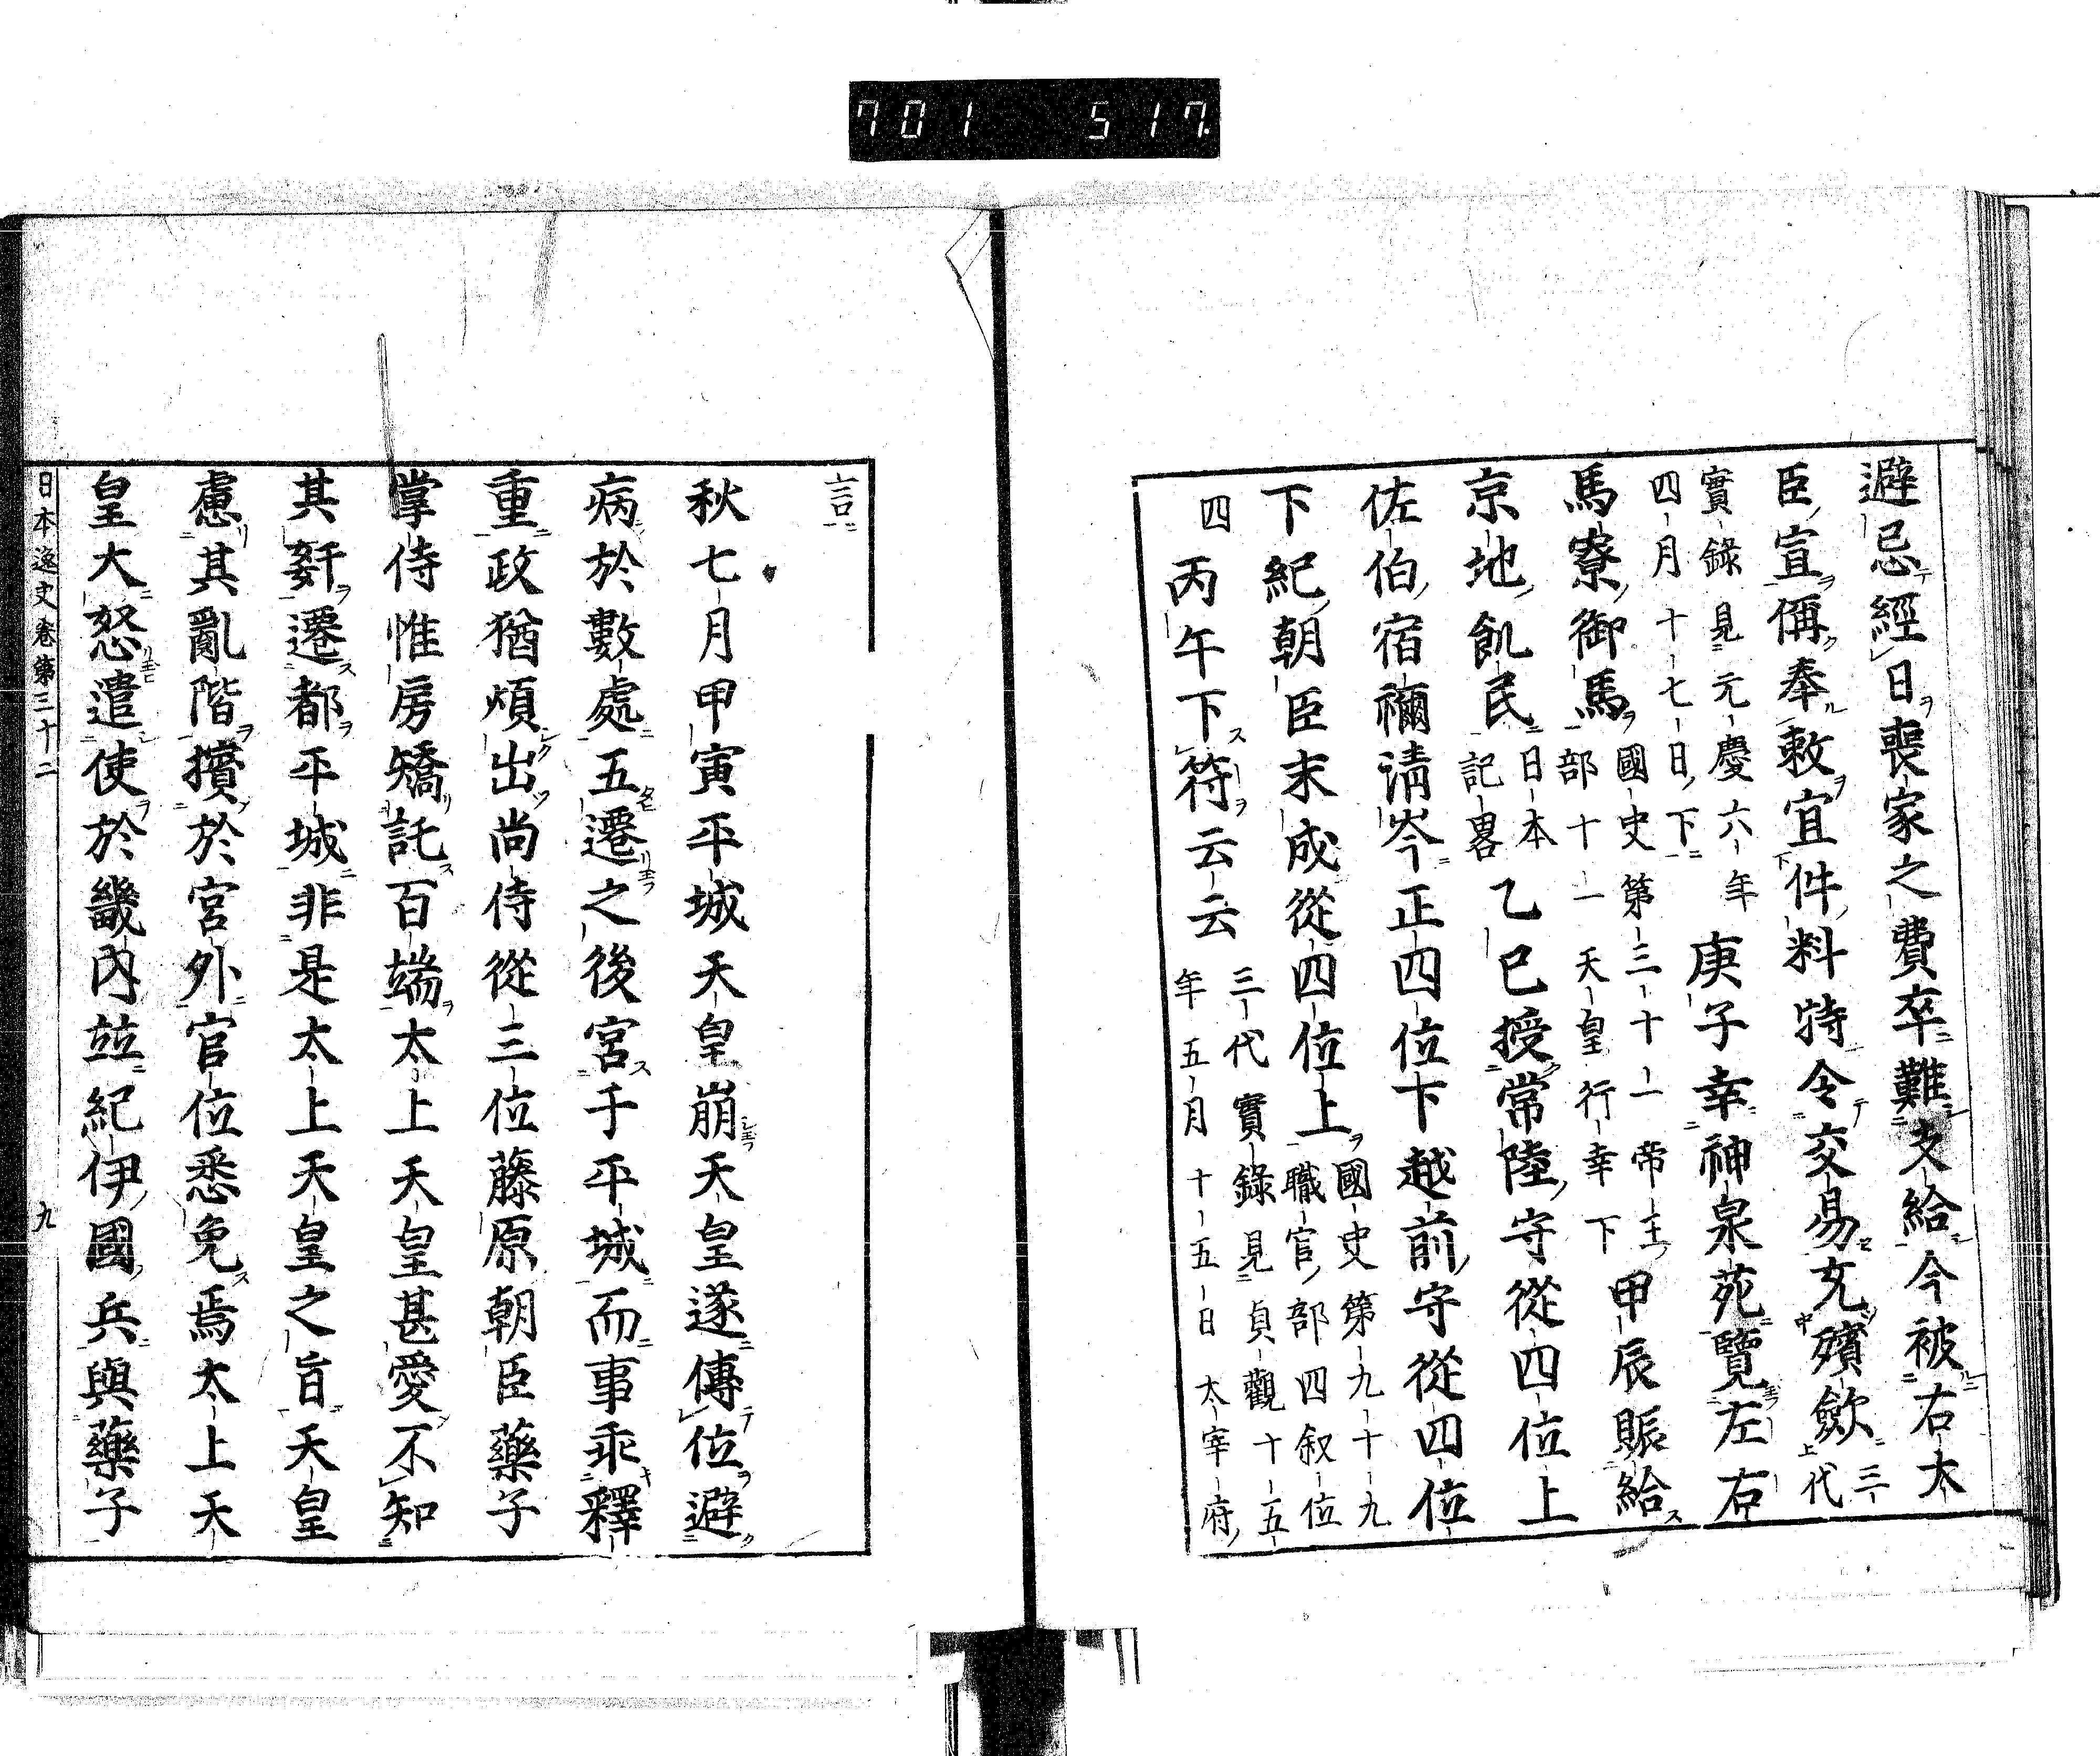 701 517.
避忌經日喪家之費卒難支給今被右大
臣宣偁奉敕宜件料特令交易充殯歛三代
實錄見元慶六年
四月十七日下
庚子幸神泉苑覽左右
馬寮御馬
國史第三十一帝王
部十一天皇行幸下
甲辰賑給
京地飢民
日本
記畧
乙巳授常陸守從四位上
佐伯宿禰清岑正四位下越前守從四位
下紀朝臣末成從四位上
國史第九十九
職官部四叙位
四
丙午下符云云
三代實錄見貞觀十五
年五月十五日太宰府
言
秋七月甲寅平城天皇崩天皇遂傳位避
病於數處五遷之後宮于平城而事乖釋
重政猶煩出尚侍從三位藤原朝臣藥子
掌侍惟房矯託百端太上天皇甚愛不知
其姧遷都平城非是太上天皇之旨天皇
慮其亂階擯於宮外官位悉免焉太上天
皇大怒遣使於畿內竝紀伊國兵與藥子
日本逸史卷第三十二
九